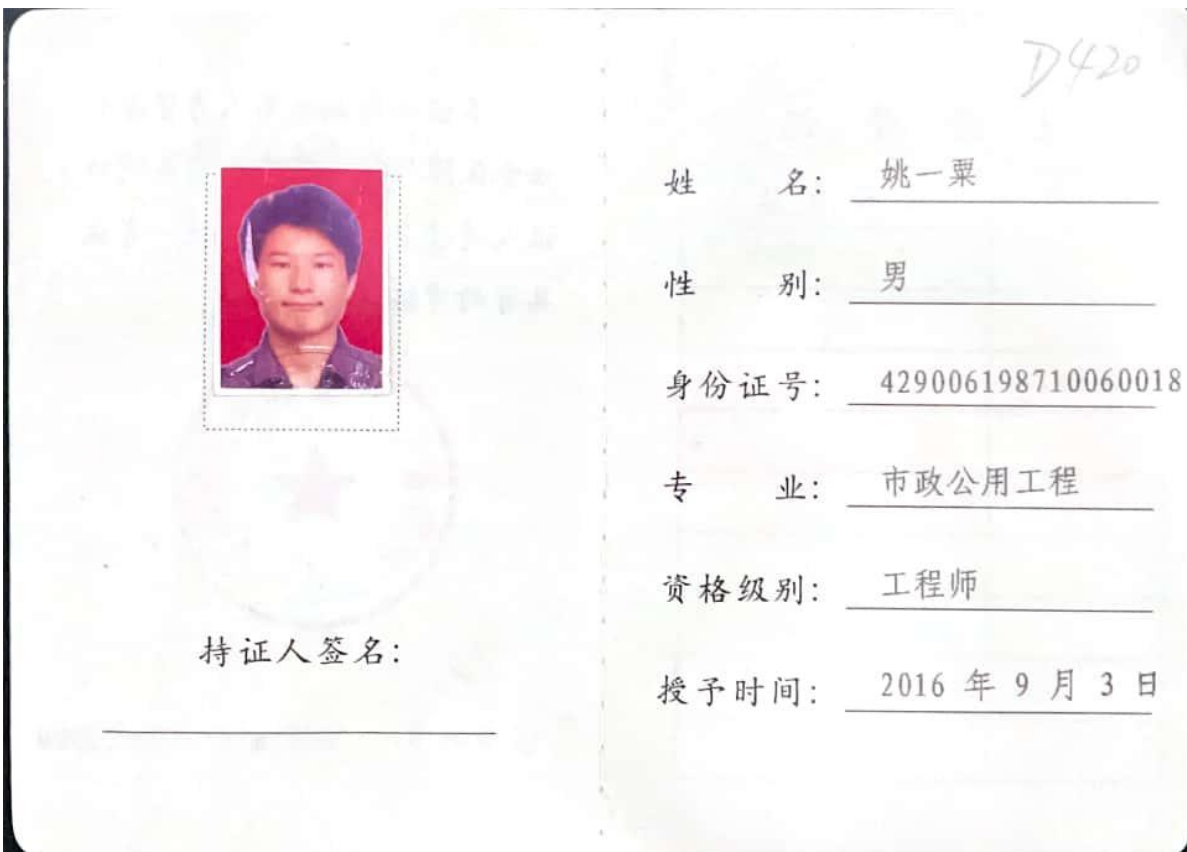 D420
姓 名: 姚一粟
性 别: 男
身份证号: 429006198710060018
专 业: 市政公用工程
资格级别: 工程师
授予时间: 2016 年 9 月 3 日
持证人签名: